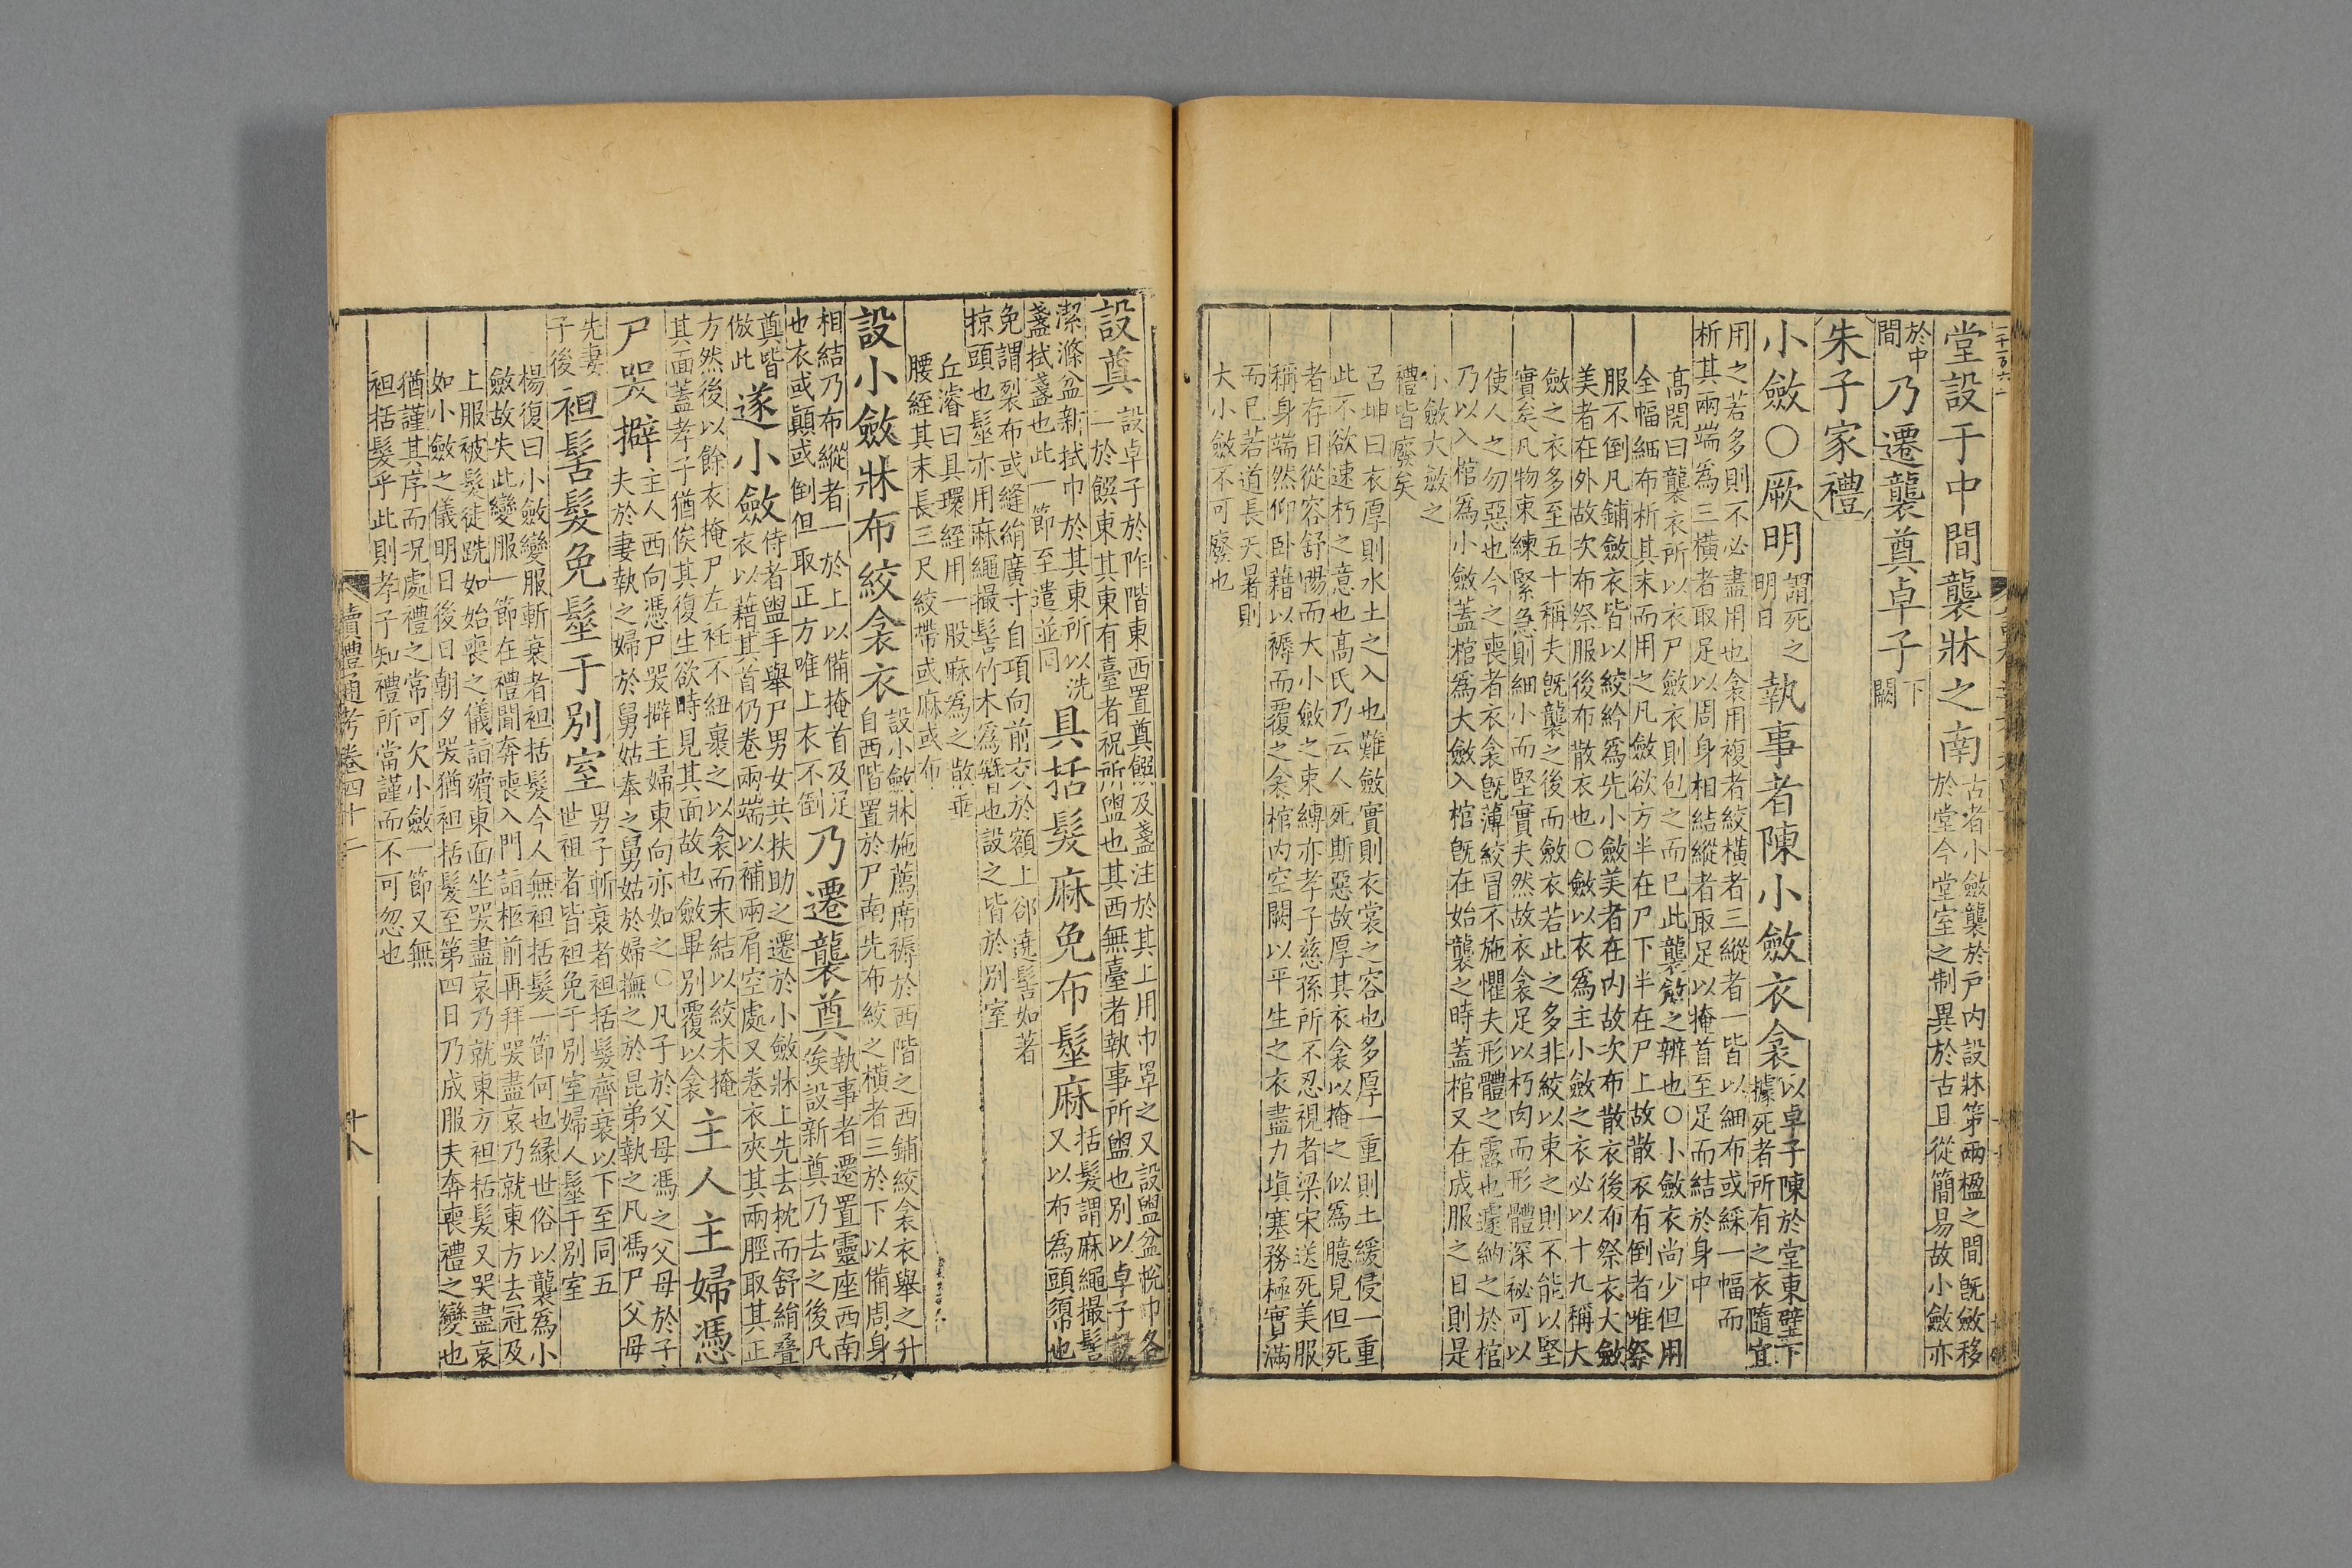 堂設于中間襲牀之南古者小斂襲於戶內設牀第兩楹之間既斂移
於堂今堂室之制異於古且從簡易故小斂亦
於中間乃遷襲奠卓子下闕
朱子家禮
小斂〇厥明謂死之明日執事者陳小斂衣衾以卓子陳於堂東壁下
據死者所有之衣隨宜
用之若多則不必盡用也衾用複者絞橫者三縱者一皆以細布或綵一幅而
析其兩端為三橫者取足以周身相結縱者取足以掩首至足而結於身中
高閌曰襲衣所以衣尸斂衣則包之而已此襲斂之辨也〇小斂衣尚少但用
全幅細布析其末而用之凡斂欲方半在尸下半在尸上故散衣有倒者唯祭
服不倒凡鋪斂衣皆以絞紟為先小斂美者在內故次布散衣後布祭衣大斂
美者在外故次布祭服後布散衣也〇斂以衣為主小斂之衣必以十九稱大
斂之衣多至五十稱夫既襲之後而斂衣若此之多非絞以束之則不能以堅
實矣凡物束練緊急則細小而堅實夫然故衣衾足以朽肉而形體深秘可以
使人之勿惡也今之喪者衣衾既薄絞冒不施懼夫形體之露也遽納之於棺
乃以入棺為小斂蓋棺為大斂入棺既在始襲之時蓋棺又在成服之日則是
小斂大斂之
禮皆廢矣
呂坤曰衣厚則水土之入也難斂實則衣裳之容也多厚一重則土緩侵一重
此不欲速朽之意也高氏乃云人死斯惡故厚其衣衾以掩之似為臆見但死
者存日從容舒暢而大小斂之束縛亦孝子慈孫所不忍視者梁宋送死美服
稱身端然仰卧藉以褥而覆之衾棺內空闕以平生之衣盡力塡塞務極實滿
而已若道長天暑則
大小斂不可廢也
設奠設卓子於阼階東西置奠饌及盞注於其上用巾罩之又設盥盆帨巾各
一於饌東其東有臺者祝所盥也其西無臺者執事所盥也別以卓子設
潔滌盆新拭巾於其東所以洗
盞拭盞也此一節至遣並同具括髮麻免布髽麻括髮謂麻繩撮髻
又以布為頭𢄼也
免謂裂布或縫絹廣寸自項向前交於額上郤遶髻如著
掠頭也髽亦用麻繩撮髻竹木為簪也設之皆於別室
丘濬曰具環絰用一股麻為之散垂
腰絰其末長三尺絞帶或麻或布
設小斂牀布絞衾衣設小斂牀施薦席褥於西階之西鋪絞衾衣舉之升
自西階置於尸南先布絞之橫者三於下以備周身
相結乃布縱者一於上以備掩首及足
也衣或顚或倒但取正方唯上衣不倒乃遷襲奠執事者遷置靈座西南
俟設新奠乃去之後凡
奠皆
倣此遂小斂侍者盥手舉尸男女共扶助之遷於小斂牀上先去枕而舒絹疊
衣以藉其首仍卷兩端以補兩肩空處又卷衣夾其兩脛取其正
方然後以餘衣掩尸左衽不紐裹之以衾而未結以絞未掩
其面蓋孝子猶俟其復生欲時見其面故也斂畢別覆以衾主人主婦憑
尸哭擗主人西向憑尸哭擗主婦東向亦如之〇凡子於父母馮之父母於子
夫於妻執之婦於舅姑奉之舅姑於婦撫之於昆弟執之凡馮尸父母
先妻
子後袒髻髮免髽于別室男子斬衰者袒括髮齊衰以下至同五
世祖者皆袒免于別室婦人髽于別室
楊復曰小斂變服斬衰者袒括髮今人無袒括髮一節何也緣世俗以襲為小
斂故失此變服一節在禮聞奔喪入門詣柩前再拜哭盡哀乃就東方去冠及
上服被髮徒跣如始喪之儀詣殯東面坐哭盡哀乃就東方袒括髮又哭盡哀
如小斂之儀明日後日朝夕哭猶袒括髮至第四日乃成服夫奔喪禮之變也
猶謹其序而況處禮之常可欠小斂一節又無
袒括髮乎此則孝子知禮所當謹而不可忽也
讀禮通考卷四十二